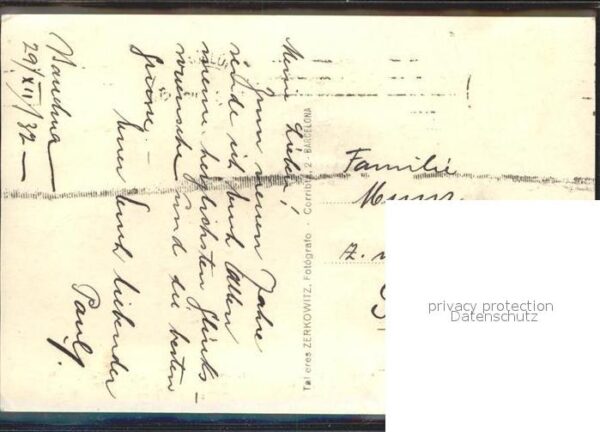 Meine Lieben!
Zum neuen Jahre
sende ich Euch Allen
meine herzlichsten Glücks-
wünsche und die besten
Grüsse. —
Euer Euch liebender
Paul.
29/XII/32 —
Talleres ZERKOWITZ, Fotógrafo · Corribia, 2 - BARCELONA
Familie
privacy protection
Datenschutz